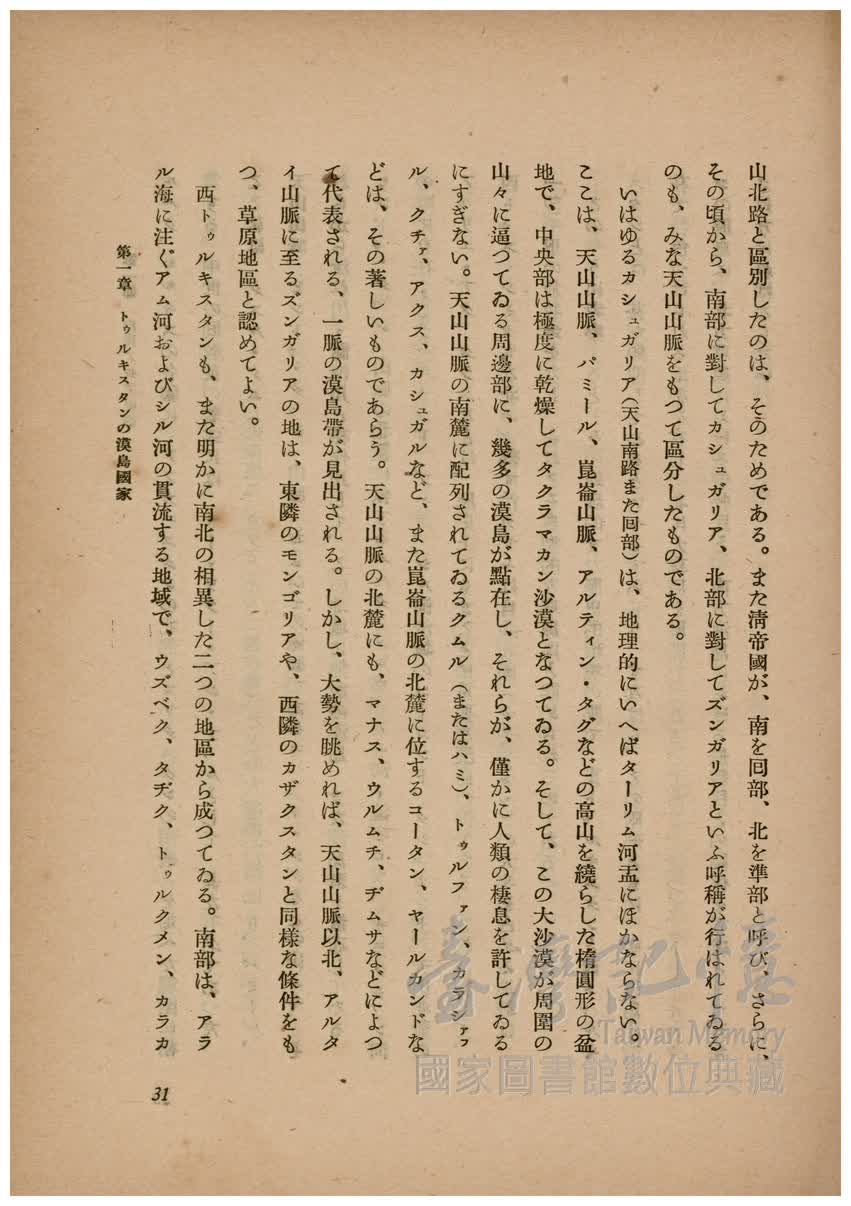 山北路と區別したのは、そのためである。また淸帝國が、南を回部、北を準部と呼び、さらに、
その頃から、南部に對してカシュガリア、北部に對してズンガリアといふ呼稱が行はれてゐる
のも、みな天山山脈をもつて區分したものである。
いはゆるカシュガリア(天山南路また回部)は、地理的にいへばターリム河盂にほかならない。
ここは、天山山脈、パミール、崑崙山脈、アルティン・タグなどの高山を繞らした楕圓形の盆
地で、中央部は極度に乾燥してタクラマカン沙漠となつてゐる。そして、この大沙漠が周圍の
山々に逼つてゐる周邊部に、幾多の漠島が點在し、それらが、僅かに人類の棲息を許してゐる
にすぎない。天山山脈の南麓に配列されてゐるクムル(またはハミ)、トゥルファン、カラシァフ
ル、クチァ、アクス、カシュガルなど、また崑崙山脈の北麓に位するコータン、ヤールカンドな
どは、その著しいものであらう。天山山脈の北麓にも、マナス、ウルムチ、ヂムサなどによつ
て代表される、一脈の漠島帶が見出される。しかし、大勢を眺めれば、天山山脈以北、アルタ
イ山脈に至るズンガリアの地は、東隣のモンゴリアや、西隣のカザクスタンと同樣な條件をも
つ、草原地區と認めてよい。
西トゥルキスタンも、また明かに南北の相異した二つの地區から成つてゐる。南部は、アラ
ル海に注ぐアム河およびシル河の貫流する地域で、ウズベク、タヂク、トゥルクメン、カラカ
第一章 トゥルキスタンの漠島國家
31
臺灣記憶
Taiwan Memory
國家圖書館數位典藏